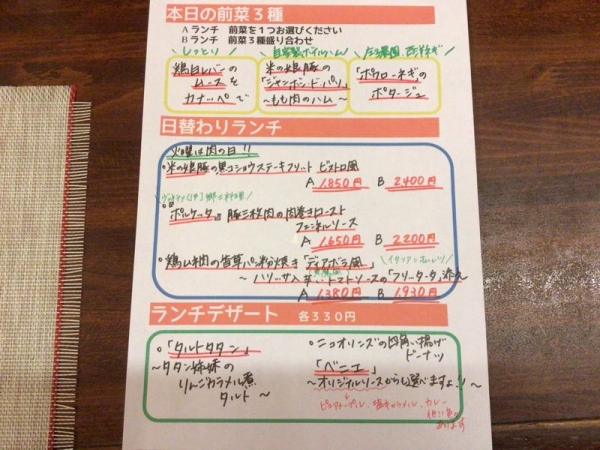 本日の前菜3種
Aランチ 前菜を1つお選びください
Bランチ 前菜3種盛り合わせ
しっとり
鶏白レバーの
ムースを
カナッペで
自家製ボイルハム
米の娘豚の
「ジャンボン・ド・パリ」
〜もも肉のハム〜
「ポワローネギ」の
ポタージュ
日替わりランチ
火曜は肉の日!!
・米の娘豚の黒コショウステーキフリット ビストロ風
A 1,850円 B 2,400円
・「ポルケッタ」 豚三枚肉の肉巻きロースト
フェンネルソース
A 1,650円 B 2,200円
・鶏ムネ肉の香草パン粉焼き「ディアボラ風」
イタリアンオムレツ
〜ハリッサ入辛いトマトソースの「フリッタータ」添え
A 1380円 B 1,930円
ランチデザート 各330円
・「タルトタタン」
〜タタン姉妹の
りんごカラメル煮
タルト〜
・ニューオリンズの四角い揚げ
ドーナツ
「ベニエ」
〜オリジナルソースからも選べますよ!!〜
塩キャラメル、カレー